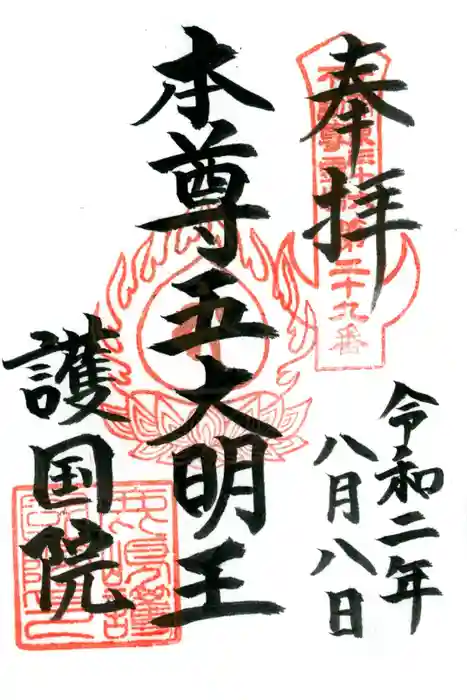 奉拝
令和二年
八月八日
本尊五大明王
護国院
第二十九番